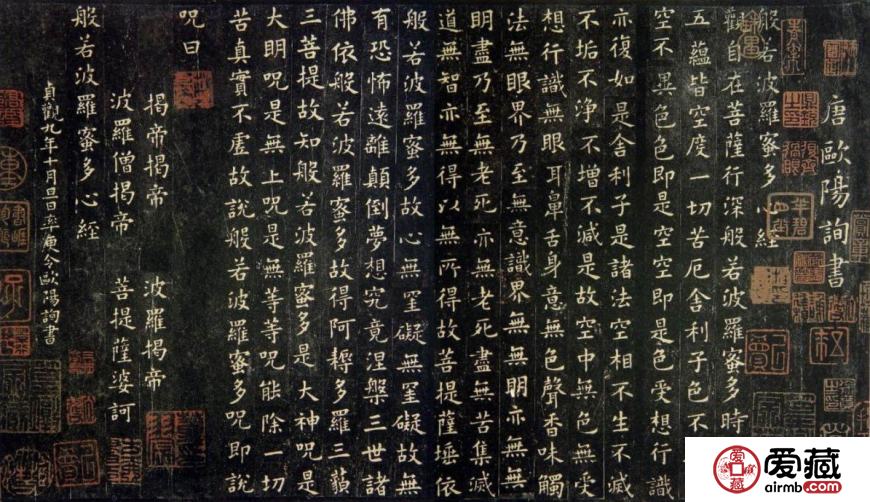 唐歐陽詢書
般若波羅蜜多心經
觀自在菩薩行深般若波羅蜜多時
五蘊皆空度一切苦厄舍利子色不
空不異色色即是空空即是色受想行識
亦復如是舍利子是諸法空相不生不滅
不垢不淨不增不減是故空中無色無受
想行識無眼耳鼻舌身意無色聲香味觸
法無眼界乃至無意識界無無明亦無無
明盡乃至無老死亦無老死盡無苦集滅
道無智亦無得以無所得故菩提薩埵依
般若波羅蜜多故心無罣礙無罣礙故無
有恐怖遠離顛倒夢想究竟涅槃三世諸
佛依般若波羅蜜多故得阿耨多羅三藐
三菩提故知般若波羅蜜多是大神呪是
大明呪是無上呪是無等等呪能除一切
苦真實不虛故說般若波羅蜜多呪即說
呪曰
揭帝揭帝 波羅揭帝
波羅僧揭帝 菩提薩婆訶
般若波羅蜜多心經
貞觀九年十月旦日率更令歐陽詢書
爱藏
airmb.com